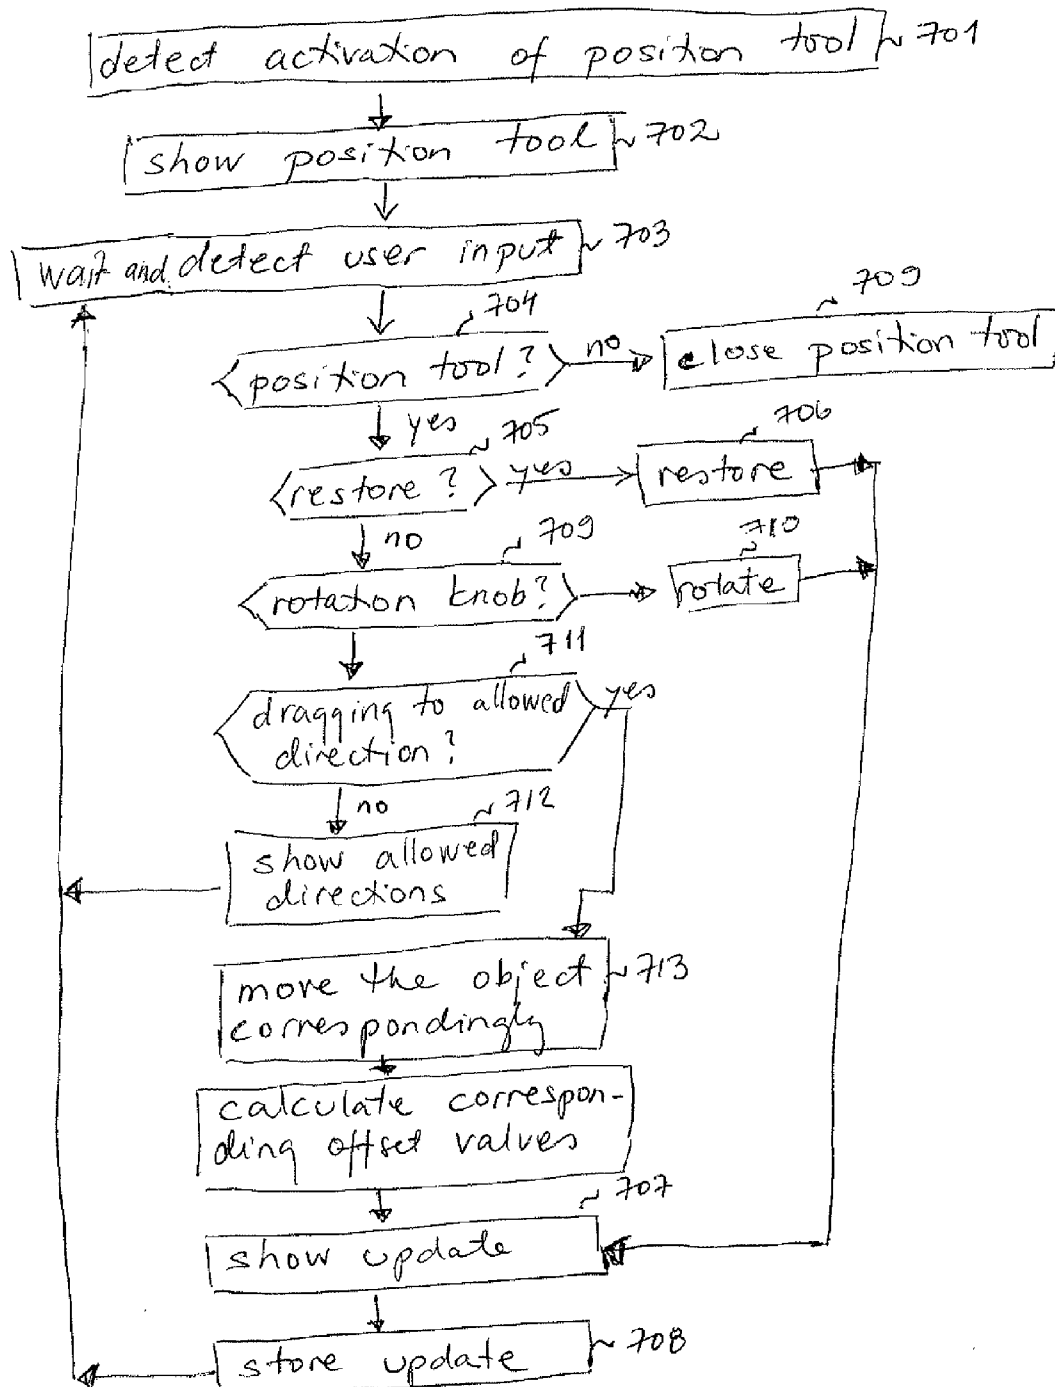 detect activation of position tool 701
show position tool 702
wait and detect user input 703
704
709
position tool? no close position tool
yes 705 706
restore? yes restore
no 709 710
rotation knob? rotate
711
dragging to allowed yes
direction?
no 712
show allowed
directions
move the object 713
correspondingly
calculate correspon-
ding offset values
707
show update
store update 708